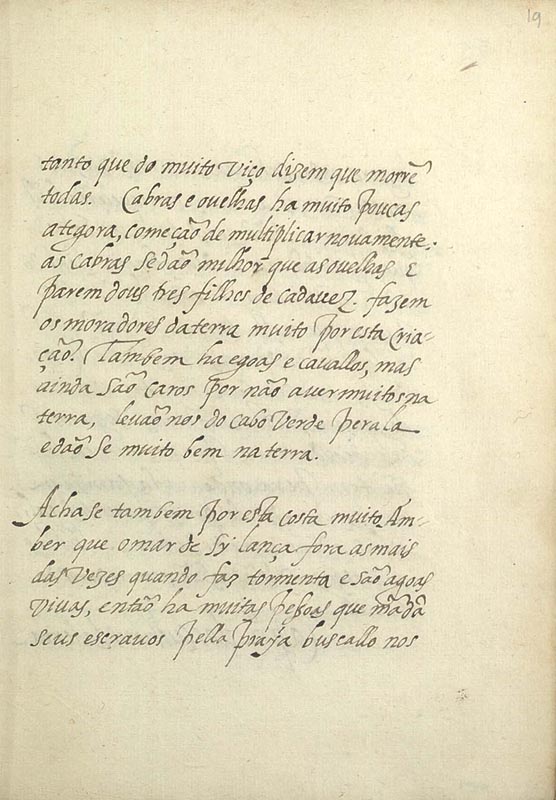 19
tanto que do muito viço dizem que morrẽ
todas. Cabras e ovelhas ha muito poucas
ategora, começão de multiplicar novamente:
as cabras se dão milhor que as ovelhas E
parem dous tres filhos de cada vez. fazem
os moradores da terra muito por esta cria-
ção. Tambem ha egoas e cavallos, mas
ainda são caros por não aver muitos na
terra, levão nos do cabo Verde pera la
e dão se muito bem na terra.
Acha se tambem por esta costa muito Am-
ber que o mar de sy lança fora as mais
das vezes quando faz tormenta e são agoas
vivas, então ha muitas pessoas que mãdã
seus escravos pella praya buscallo nos